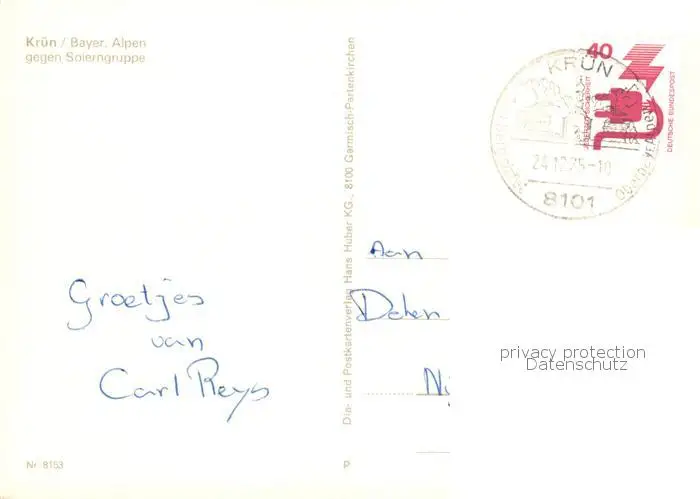 Krün / Bayer. Alpen
gegen Soierngruppe
Groetjes
van
Carl Reys
Nr. 8153
Dia- und Postkartenverlag Hans Huber KG., 8100 Garmisch-Partenkirchen
P
Aan
Delen
Ni
40
DEUTSCHE BUNDESPOST
KRÜN
24.12.75-10
8101
privacy protection
Datenschutz